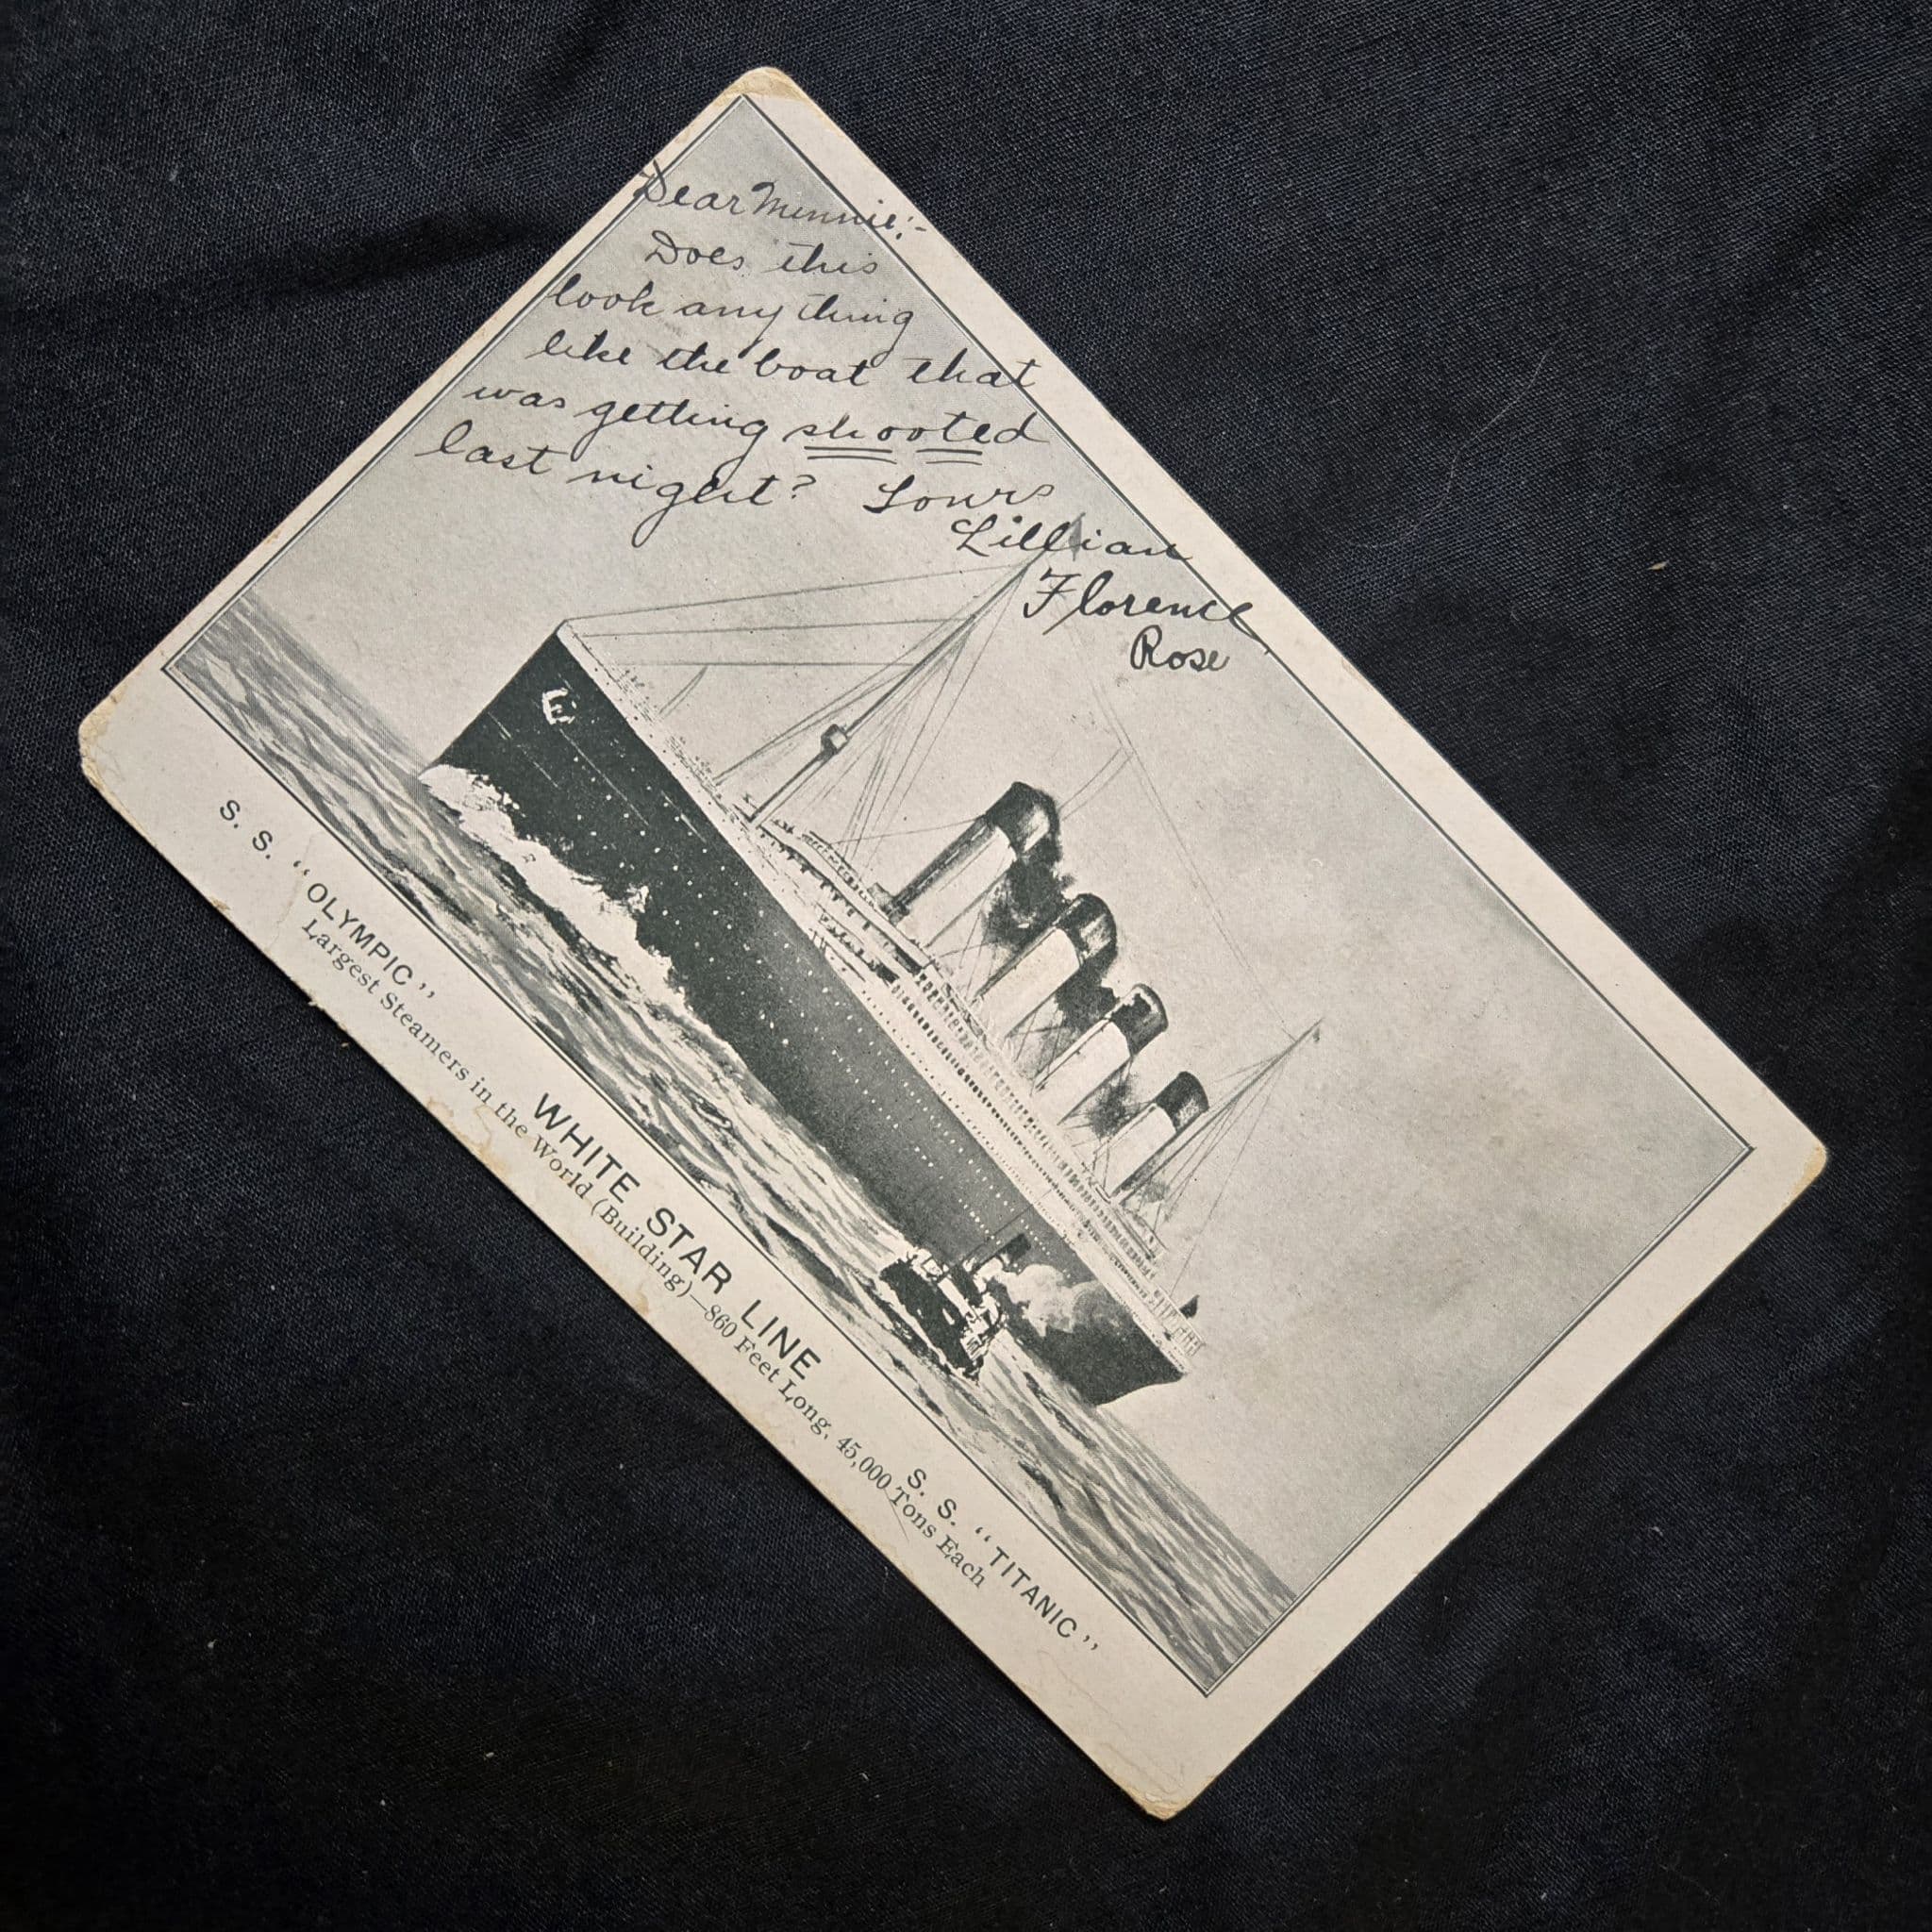 Dear Minnie:-
Does this
look any thing
like the boat that
was getting shooted
last night? Yours
Lillian
Florence
Rose
S. S. "OLYMPIC"
WHITE STAR LINE
S. S. "TITANIC"
Largest Steamers in the World (Building)—860 Feet Long, 45,000 Tons Each